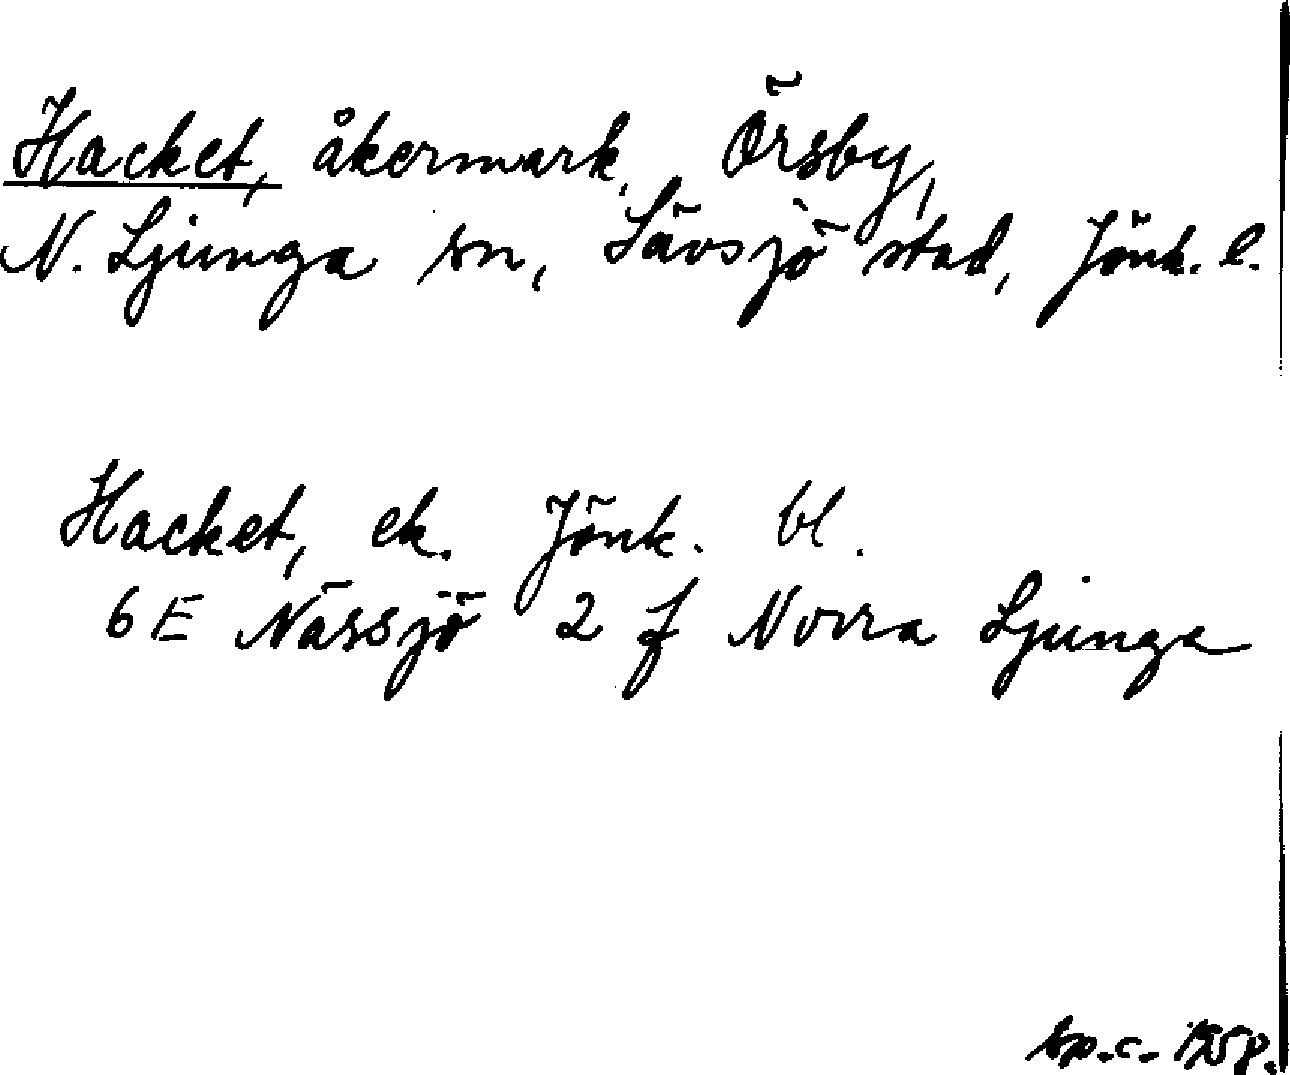 Hacket, åkermark, Örsby,
N. Ljunga sn, Sävsjö stad, Jönk. l.
Hacket, ek. Jönk. bl.
6E Nässjö 2 f Norra Ljunga
sp.c. 1958.